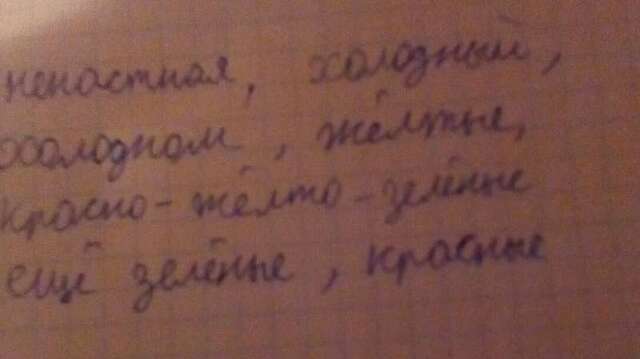 ненастная, холодный,
холодном, жёлтые,
красно-жёлто-зелёные
ещё зелёные, красные